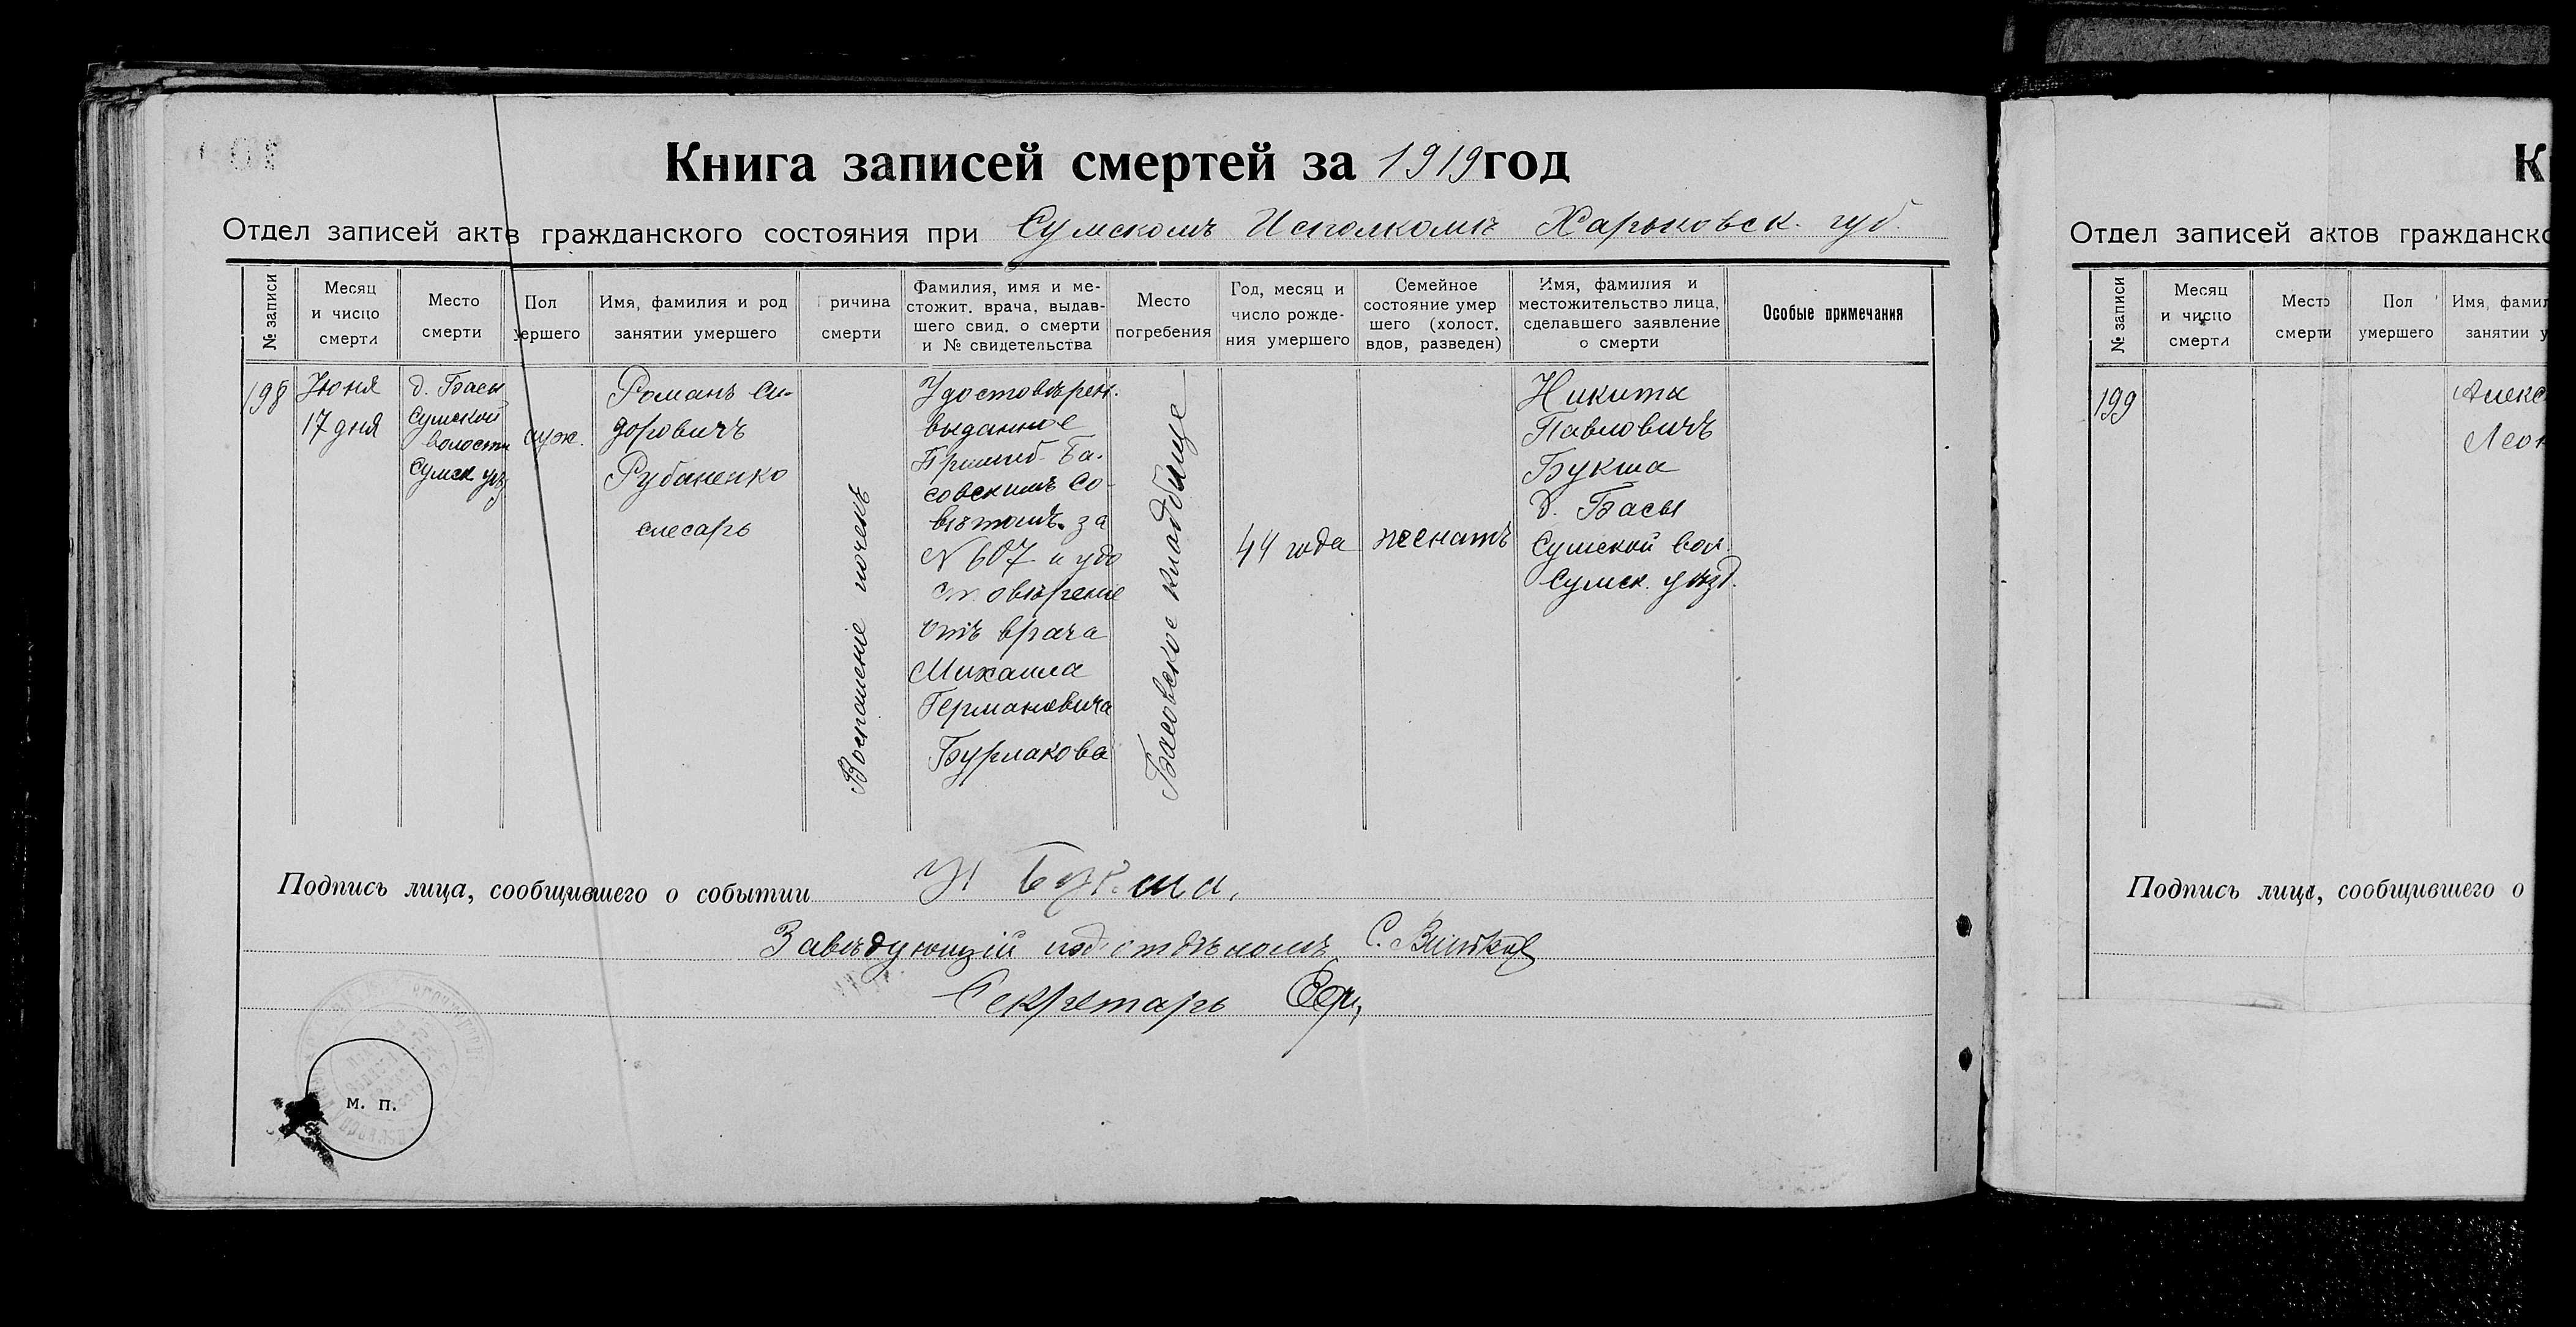 Книга записей смертей за 1919 год
Отдел записей актв гражданского состояния при Сумскомъ Исполкомѣ Харьковск. губ.
№ записи
Месяц
и число
смерти
Место
смерти
Пол
умершего
Имя, фамилия и род
занятии умершего
Причина
смерти
Фамилия, имя и ме-
стожит. врача, выдав-
шего свид. о смерти
и № свидетельства
Место
погребения
Год, месяц и
число рожде-
ния умершего
Семейное
состояние умер
шего (холост.
вдов, разведен)
Имя, фамилия и
местожительство лица,
сделавшего заявление
о смерти
Особые примечания
198
Июня
17 дня
д. Басы
Сумской
волости
Сумск уѣз
муж.
Романъ Си-
доровичъ
Рубаненко
слесарь
Воспаленіе почекъ
Удостовѣрен.
выданное
Ба-
совскимъ Со-
вѣтомъ за
N 607 и удо
стовѣреніе
отъ врача
Михаила
Германовича
Бурлакова
Басовское кладбище
44 года
женатъ
Никита
Павловичъ
Букша
д. Басы
Сумской вол.
Сумск. уѣзд.
Подпись лица, сообщившего о событии Н Букша.
Завѣдующій подотдѣломъ С.
Секретарь
м. п.
К
Отдел записей актов гражданско
№ записи
Месяц
и число
смерти
Место
смерти
Пол
умершего
Имя, фамил
занятии у
199
Алекс
Леон
Подпись лица, сообщившего о